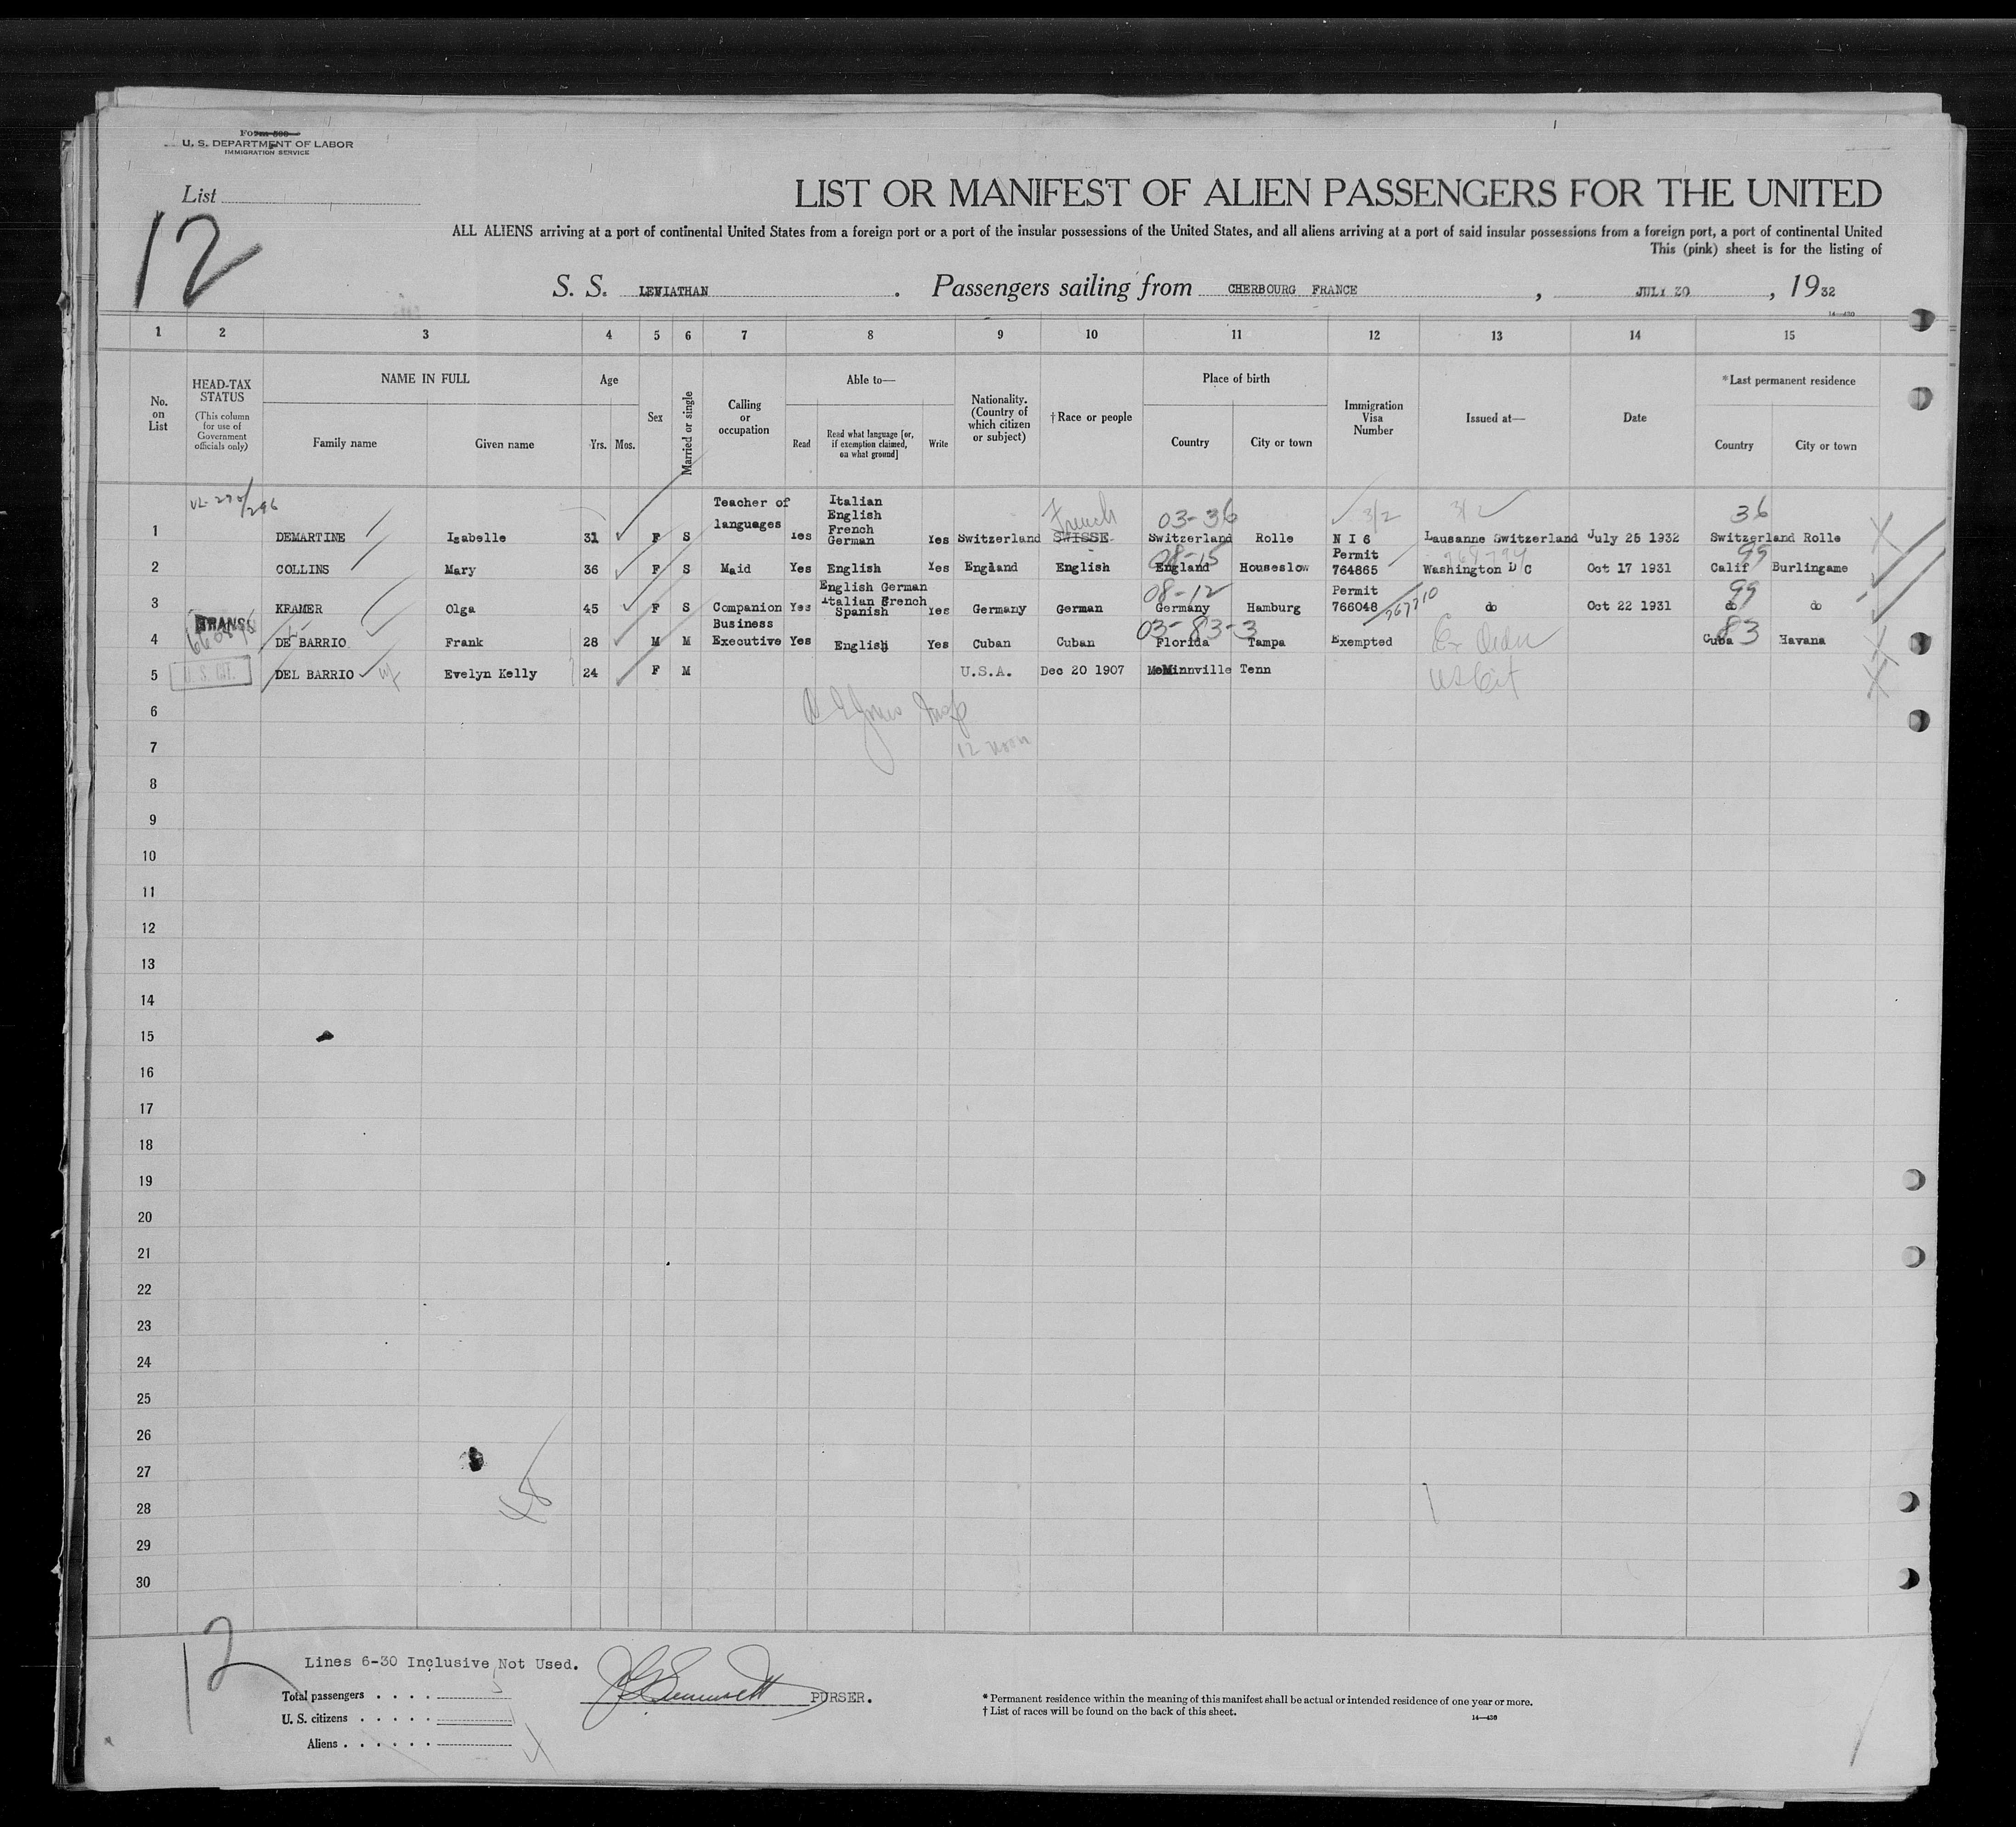 U. S. DEPARTMENT OF LABOR
IMMIGRATION SERVICE
List
12
LIST OR MANIFEST OF ALIEN PASSENGERS FOR THE UNITED
ALL ALIENS arriving at a port of continental United States from a foreign port or a port of the insular possessions of the United States, and all aliens arriving at a port of said insular possessions from a foreign port, a port of continental United
This (pink) sheet is for the listing of
S. S. LEVIATHAN . Passengers sailing from CHERBOURG FRANCE , JULY 30 , 1932
14—430
1 2 3 4 5 6 7 8 9 10 11 12 13 14 15
No. on List
HEAD-TAX STATUS
(This column for use of Government officials only)
NAME IN FULL
Family name Given name
Age
Yrs. Mos.
Sex
Married or single
Calling or occupation
Able to—
Read
Read what language [or, if exemption claimed, on what ground]
Write
Nationality. (Country of which citizen or subject)
†Race or people
Place of birth
Country City or town
Immigration Visa Number
Issued at—
Date
*Last permanent residence
Country City or town
Teacher of Italian
languages English
French French 03-36 3/2 3/2 36
1 DEMARTINE Isabelle 31 F S Yes German Yes Switzerland SWISSE Switzerland Rolle N I 6 Lausanne Switzerland July 25 1932 Switzerland Rolle
08-15 Permit 99
2 COLLINS Mary 36 F S Maid Yes English Yes England English England Houseslow 764865 Washington D C Oct 17 1931 Calif Burlingame
English German 08-12 Permit 99
Italian French
3 KRAMER Olga 45 F S Companion Yes Spanish Yes Germany German Germany Hamburg 766048 do Oct 22 1931 do do
Business 03-83-3 83
4 DE BARRIO Frank 28 M M Executive Yes English Yes Cuban Cuban Florida Tampa Exempted Cuba Havana
5 U. S. CIT. DEL BARRIO Evelyn Kelly 24 F M U.S.A. Dec 20 1907 McMinnville Tenn US Cit
6
7 12 noon
8
9
10
11
12
13
14
15
16
17
18
19
20
21
22
23
24
25
26
27
28 48
29
30
12
Lines 6-30 Inclusive Not Used.
Total passengers . . . . 5
U. S. citizens . . . . . 1
Aliens . . . . . . 4
PURSER.
* Permanent residence within the meaning of this manifest shall be actual or intended residence of one year or more.
† List of races will be found on the back of this sheet.
14—430